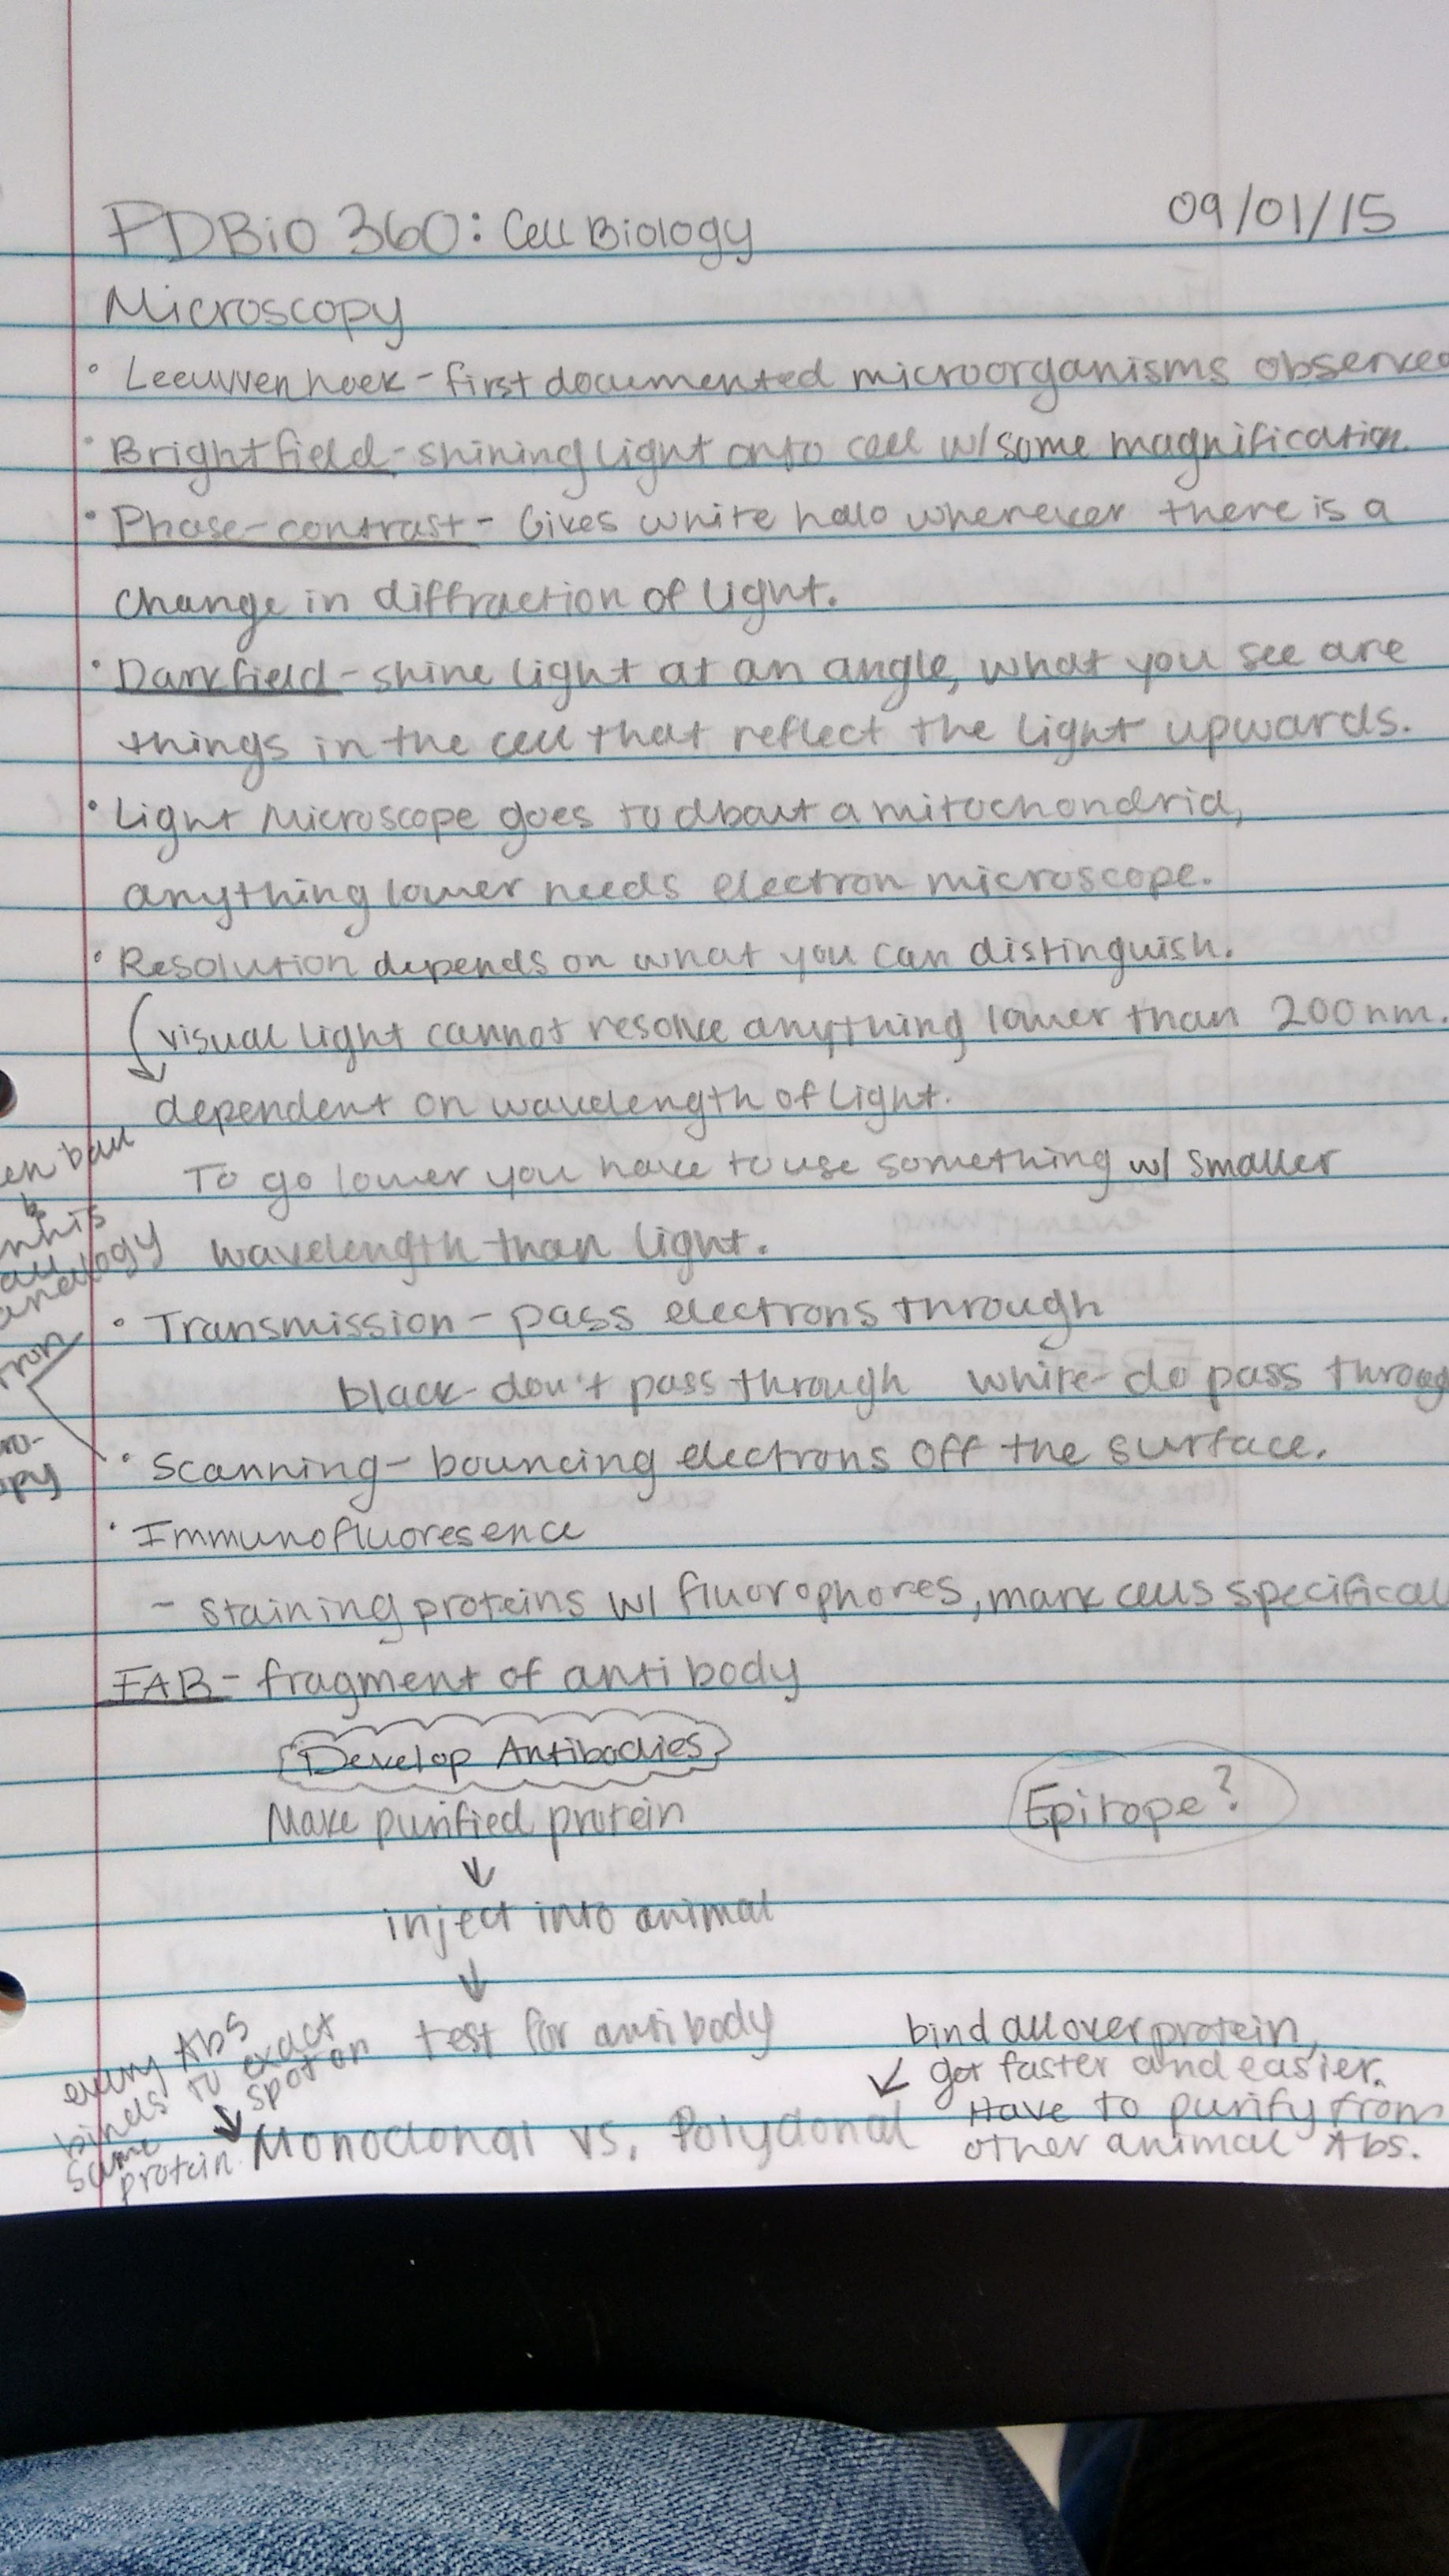 PDBio 360: Cell Biology
09/01/15
Microscopy
• Leeuwenhoek - first documented microorganisms observed
• Brightfield - shining light onto cell w/ some magnification.
• Phase-contrast - Gives white halo wherever there is a
change in diffraction of light.
• Darkfield - shine light at an angle, what you see are
things in the cell that reflect the light upwards.
• Light Microscope goes to about a mitochondria,
anything lower needs electron microscope.
• Resolution depends on what you can distinguish.
visual light cannot resolve anything lower than 200 nm.
dependent on wavelength of light.
To go lower you have to use something w/ smaller
wavelength than light.
ball
analogy
• Transmission - pass electrons through
black - don't pass through white - do pass throug
• Scanning - bouncing electrons off the surface.
• Immunofluoresence
- staining proteins w/ fluorophores, mark cells specifical
FAB - fragment of antibody
Develop Antibodies
Make purified protein
Epitope?
↓
inject into animal
↓
test for antibody
every Abs
binds to exact
same spot on
protein.
bind all over protein,
got faster and easier.
Have to purify from
other animal Abs.
Monoclonal vs. Polyclonal